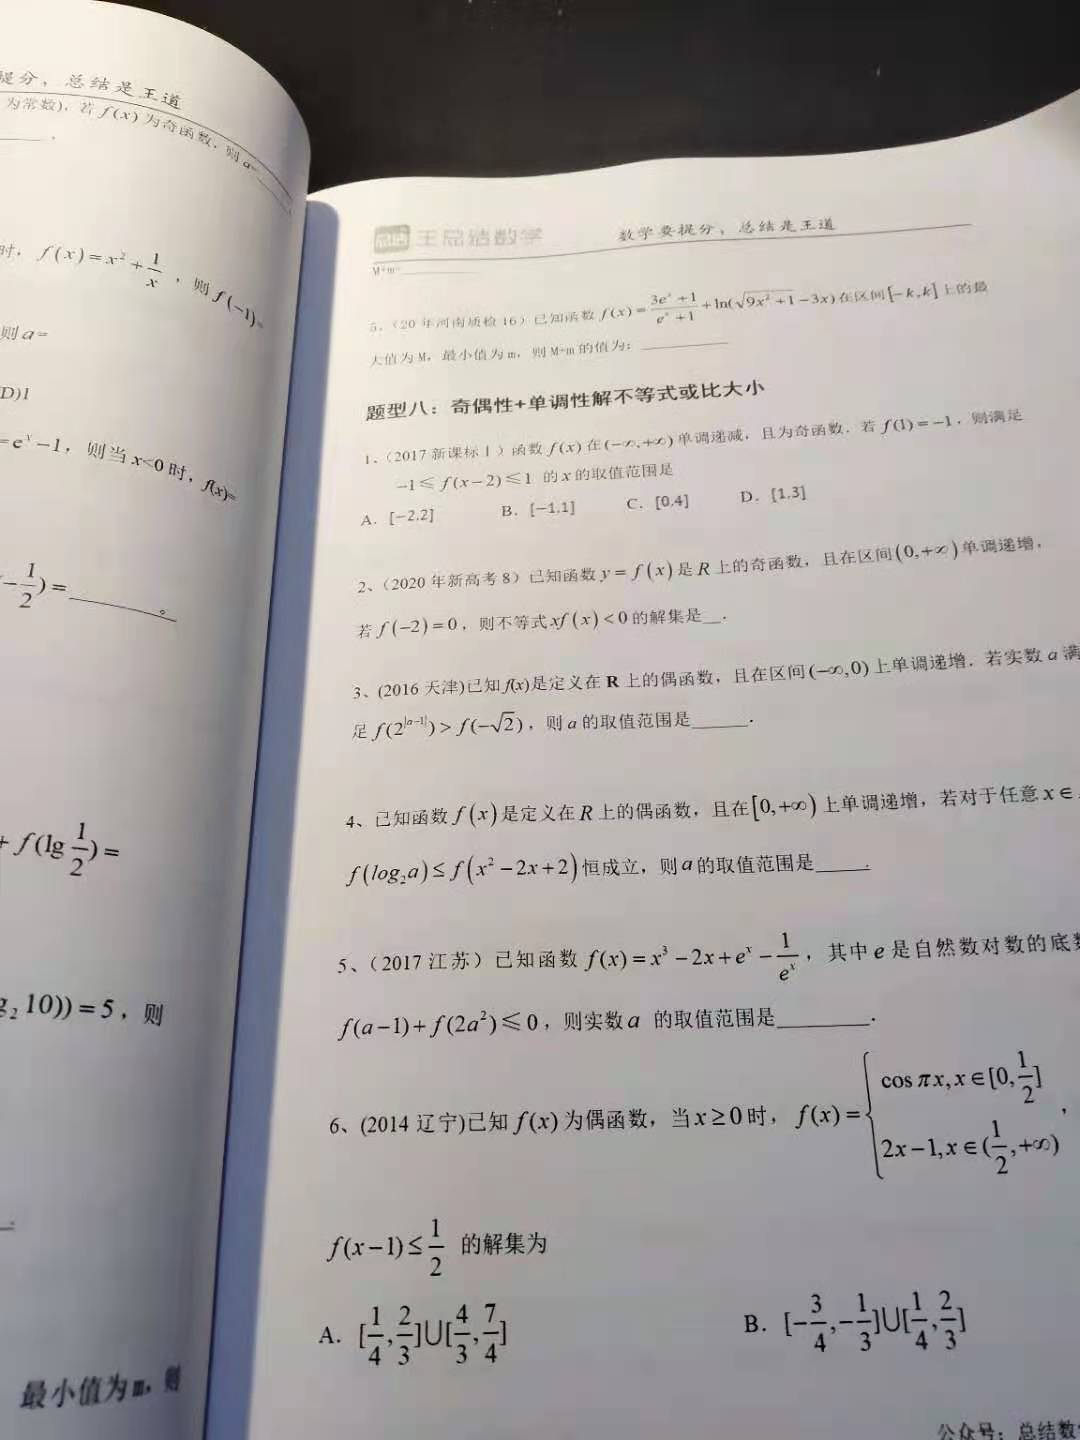 提分，总结是王道
为常数)，若 f(x) 为奇函数，则 a=
时，f(x)=x²+1/x，则 f(-1)=
则 a=
D)1
=eˣ-1，则当 x<0 时，f(x)=
(-1/2)=______。
+ f(lg 1/2)=
g₂ 10))=5，则
最小值为 m，则
总结 王总结数学 数学要提分，总结是王道
M+m=
5、（20 年河南质检 16）已知函数 f(x)=(3eˣ+1)/(eˣ+1)+ln(√(9x²+1)-3x)在区间[-k,k]上的最
大值为 M，最小值为 m，则 M+m 的值为：______
题型八：奇偶性+单调性解不等式或比大小
1、（2017 新课标 I ）函数 f(x) 在 (-∞,+∞) 单调递减，且为奇函数．若 f(1)=-1，则满足
-1≤ f(x-2)≤1 的 x 的取值范围是
A．[-2,2] B．[-1,1] C．[0,4] D．[1,3]
2、（2020 年新高考 8）已知函数 y=f(x) 是 R 上的奇函数，且在区间(0,+∞)单调递增，
若 f(-2)=0，则不等式xf(x)<0的解集是__．
3、(2016 天津)已知 f(x)是定义在 R 上的偶函数，且在区间(-∞,0)上单调递增．若实数 a 满
足 f(2^|a-1|)> f(-√2)，则 a 的取值范围是______．
4、已知函数 f(x)是定义在 R 上的偶函数，且在[0,+∞) 上单调递增，若对于任意 x∈
f(log₂a)≤ f(x²-2x+2)恒成立，则 a 的取值范围是______.
5、（2017 江苏）已知函数 f(x)=x³-2x+eˣ-1/eˣ，其中 e 是自然数对数的底数
f(a-1)+f(2a²)≤0，则实数 a 的取值范围是________．
6、(2014 辽宁)已知 f(x) 为偶函数，当 x≥0 时，f(x)={cos πx,x∈[0,1/2]
2x-1,x∈(1/2,+∞)，
f(x-1)≤1/2 的解集为
A．[1/4,2/3]∪[4/3,7/4] B．[-3/4,-1/3]∪[1/4,2/3]
公众号：总结数